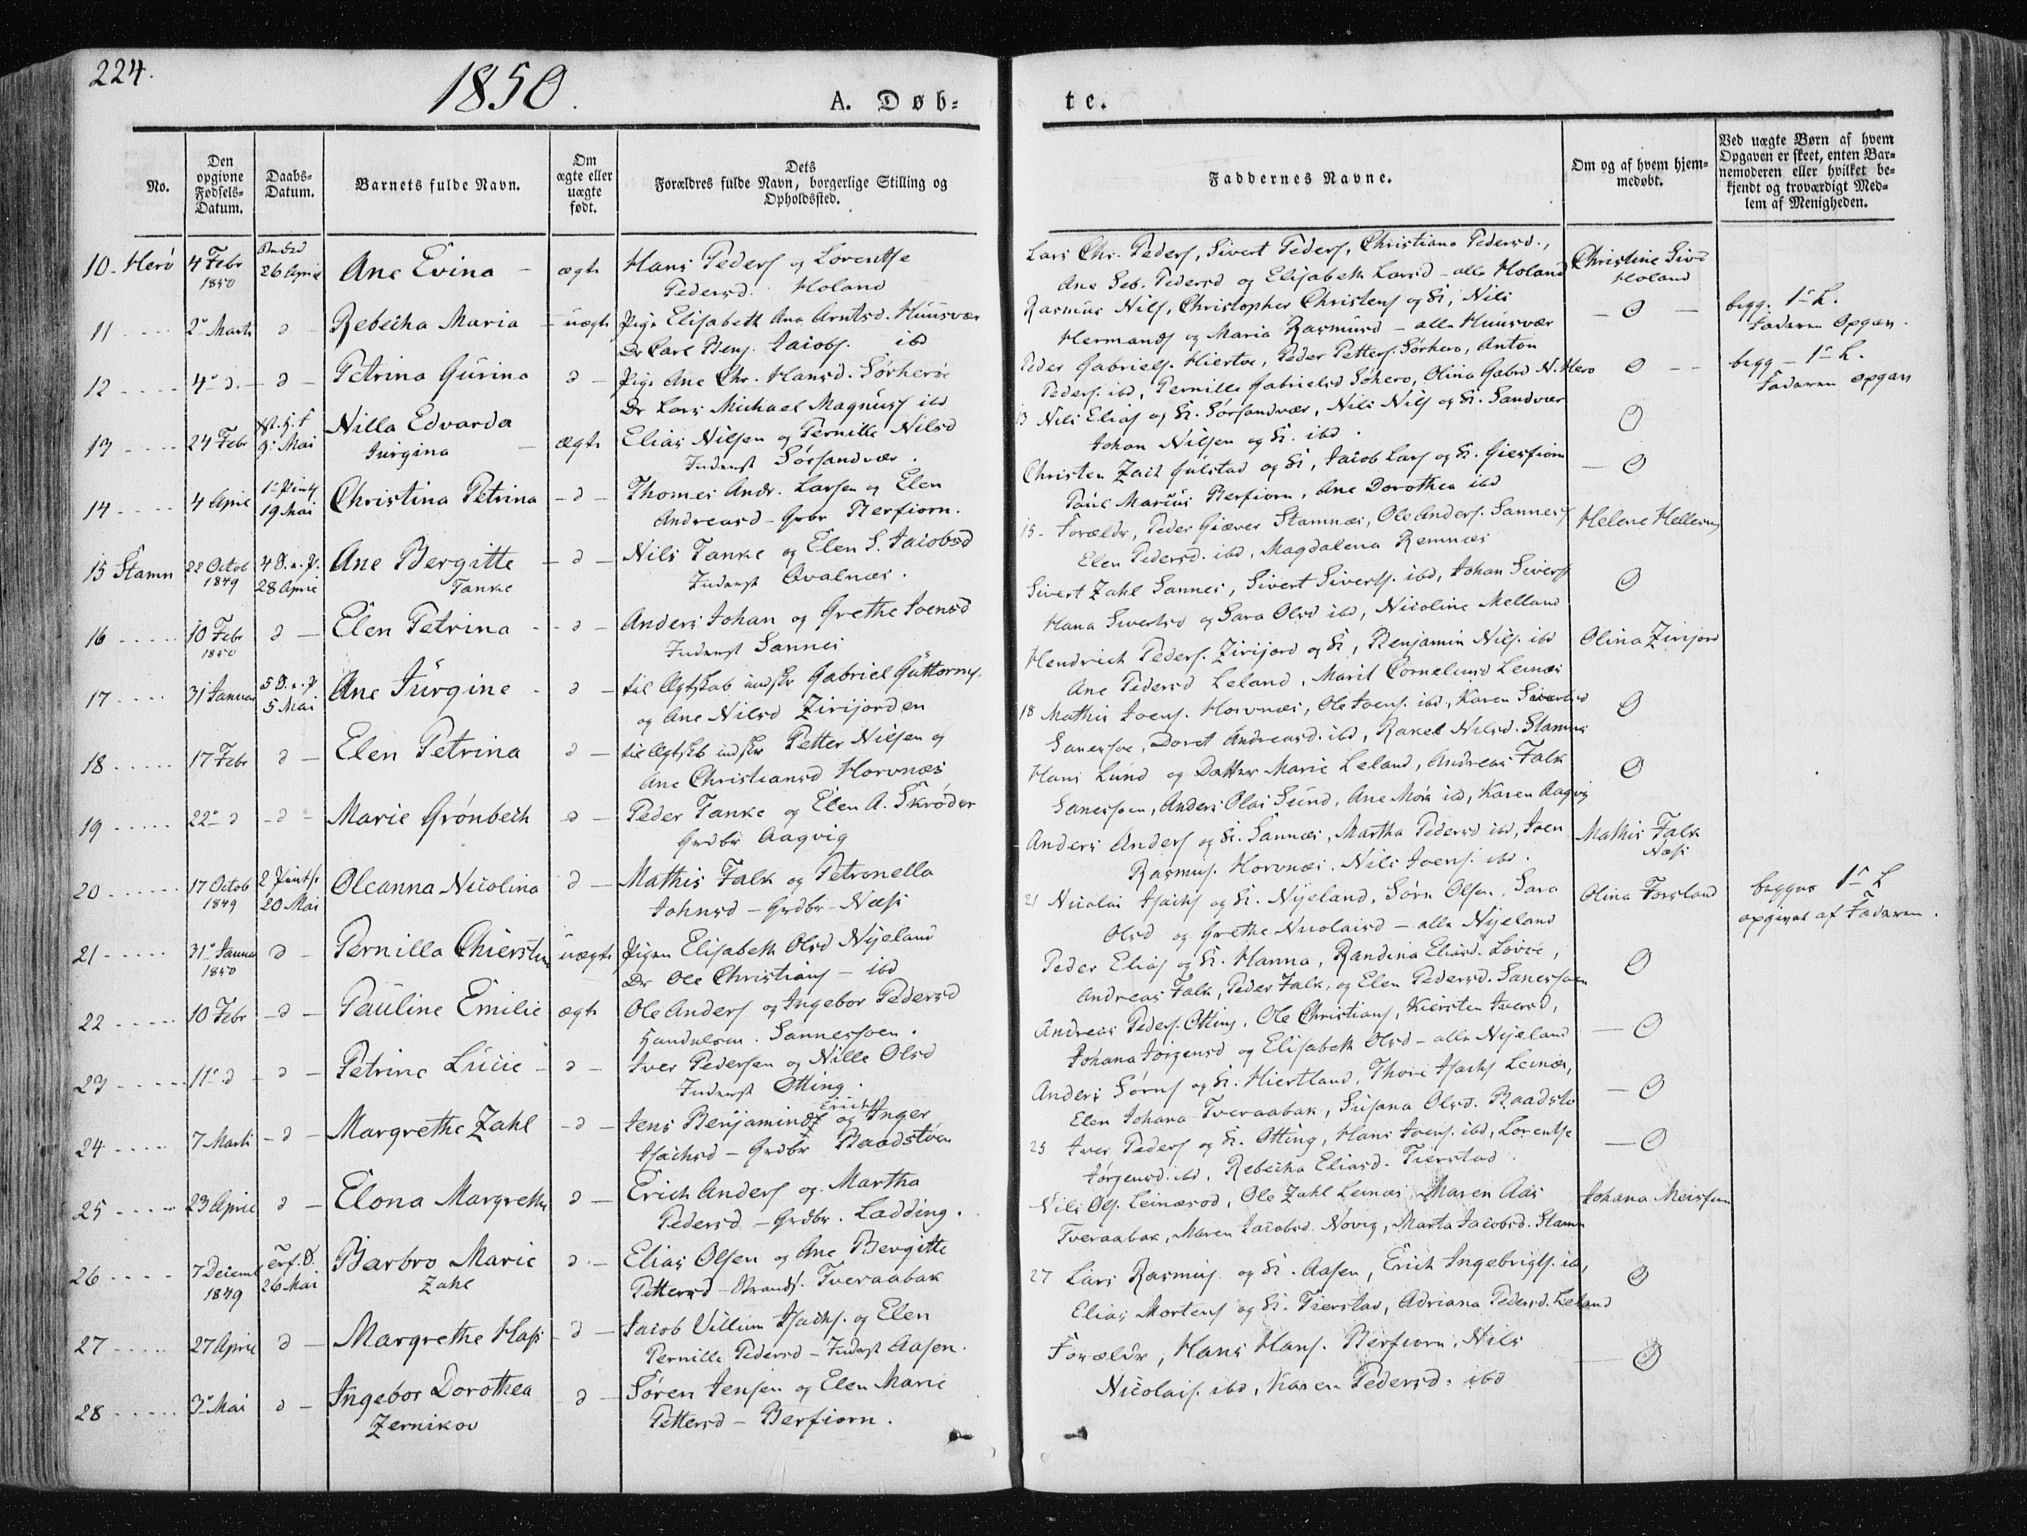 224.
1850.
A. Døb-
te.
No.
Den opgivne Fødsels-Datum.
Daabs-Datum.
Barnets fulde Navn.
Om ægte eller uægte født.
Dets Forældres fulde Navn, borgerlige Stilling og Opholdssted.
Faddernes Navne.
Om og af hvem hjem-medøbt.
Ved uægte Børn af hvem Opgaven er skeet, enten Bar-nemoderen eller hvilket be-kjendt og troværdigt Med-lem af Menigheden.
10 - Herø 4 Febr 1850 26 April Ane Evina - ægte Hans Peders og Lorentse
Pedersd. Holand
Lars Chr. Peders, Sivert Peders, Christiana Pedersd.,
Ane Seb. Pedersd og Elisabeth Larsd - alle Holand
Christine Sivd Holand
11 2' Marts d - Rebecha Maria - uægte Pige Elisabeth Ana Arntsd. Huusvær
Dr Carl Benj. Jacobs. ibd
Rasmus Nils, Christopher Christens og K, Nils
Hermands og Maria Rasmusd - alle Huusvær
- 0 -
begg. 1ste L.
Faderen Opgav.
12 4' d. - d - Petrina Gurina d - Pige Ane Chr. Hansd. Sørherøe
Dr Lars Michael Magnus ibd
Peder Gabriels. Hiertøe, Peder Petters. Sørherø, Anton
Peders. ibd, Pernille Gabrielsd Søherø, Olina Gabrd N. Herø
0 -
begg - 1ste L.
Faderen opgav
13 24 Febr 9' Mai Nilla Edvarda
Jurgina - ægte Elias Nilsen og Pernille Nilsd
Inderst Sørsandvær.
13 Nils Elias og K. Sørsandvær, Nils Nils og K. Sandvær
Johan Nilsen og K. ibd.
0
14 4 April 1ste Pints. 19 Mai Christina Petrina - d - Thomes Andr. Larsen og Elen
Andreasd - Grbr Berfiorn.
Christen Zach Gulstad og K, Jacob Lars og K. Giesfiorn
Paul Marcus Berfiorn, Ane Dorothea ibd
- 0
15 Stamn 22 Octob 1849 4 S. e. P. 28 April Ane Bergitte
Tanke - d - Nils Tanke og Elen S. Jacobsd
Inderst Qvalnæs.
15 - Forældr, Peder Giæver Stamnæs, Ole Anders. Sannes
Elen Pedersd. ibd, Magdalena Remnæs
Helene Hellesvig
16 10 Febr 1850 d - Elen Petrina - d - Anders Johan og Grethe Joensd
Inderst Sannes
Sivert Zahl Sannes, Sivert Siverts. ibd, Johan Sivers
Hana Sivertsd og Sara Olsd ibd, Nicoline Melland
0
17 31 Januar 5 S. e. P 5 Mai Ane Jurgine - d - til Ægteskab indskr Gabriel Guttorms.
og Ane Nilsd Zirijorden
Hendrich Peders. Zirijord og K, Benjamin Nils. ibd
Ane Pedersd Leland, Marit Corneliusd Leinæs
Olina Zirijord
18 17 Febr d - Elen Petrina d - til Ægteskb indskr Petter Nilsen og
Ane Christiansd Horvnæs
18 Mathis Joens. Horvnæs, Ole Joens. ibd, Karen Sivertsd
Sanessøe, Doret Andreasd. ibd, Rakel Nilsd. Stamnes
0
19 22' d - d - Marie Grønbech - d - Peder Tanke og Elen A. Skrøder
Grdbr Aagvig
Hans Lund og Datter Marie Leland, Andreas Falk
Sanessøen, Anders Olai Sund, Ane Mør ibd, Karen Aagvig
0
20 17 Octob 1849 2 Pints. 20 Mai Oleanna Nicolina d - Mathis Falk og Petronella
Johnsd - Grdbr - Næss
Anders Anders og K. Sannæs, Martha Pedersd ibd, Joen
Rasmus. Horvnæs. Nils Joens. ibd.
Mathis Falk Næss
21 31' Janua 1850 d - Pernilla Chierstin uægte Pigen Elisabeth Olsd Nyeland
Dr Ole Christians - ibd
21 Nicolai Isachs og K. Nyeland, Sørn Olsen, Sara
Olsd og Grethe Nicolaisd - alle Nyeland
Olina Forsland
begges 1ste L
opgivet af Faderen.
22 10 Febr - d - Pauline Emilie ægte Ole Anders og Ingebor Pedersd
Handelsm. Sannessøen.
Peder Elias og K. Hanna, Randina Eliasd. Lovøe,
Andreas Falk, Peder Falk, og Elen Pedersd. Sanessøen
0
23 11' d - d - Petrine Lucie - d - Iver Pedersen og Nille Olsd
Inderst Otting.
Andreas Peders. Otting, Ole Christians, Kiersten Iversd,
Johana Jørgensd og Elisabeth Olsd - alle Nyeland
- 0
24 7 Marts - d - Margrethe Zahl - d - Jens Benjamin Erichs og Inger
Isachsd - Grdbr Baadstøen
Anders Sørns og K. Hiertland, Thore Isachs Leinæs,
Elen Johana Tveraabak, Susana Olsd. Baadstø
- 0
25 23 April d - Elona Margrethe d - Erich Anders og Martha
Pedersd - Grdbr. Ladding.
25 Iver Peders og K. Otting, Hans Joens. ibd, Lorentse
Jørgensd. ibd, Rebecha Eliasd. Fierstad.
- 0
26 7 Decemb 1849 Trf. S. 26 Mai Barbro Marie
Zahl d. - Elias Olsen og Ane Bergitte
Pettersd - Strands. Tveraabak
Nils Ols. Leinæsod, Ole Zahl Leinæs, Maren Aas
Tveraabak, Maren Jacobsd. Novig, Marta Jacobsd. Stamn
Johana Meisfiorn
27 27 April d - Margrethe Hass - d - Jacob Villum Isachs. og Elen
Pernille Pedersd - Inderst Aasen.
27 Lars Rasmus. og K. Aasen, Erich Ingebrigts. ibd,
Elias Mortens og K. Fierstad, Adriana Pedersd. Leland
0
28 3' Mai d - Ingebor Dorothea
Zernikov d - Søren Jensen og Elen Marie
Pettersd - Berfiorn.
Forældr, Hans Hans. Berfiorn, Nils
Nicolais. ibd, Karen Pedersd. ibd
- 0